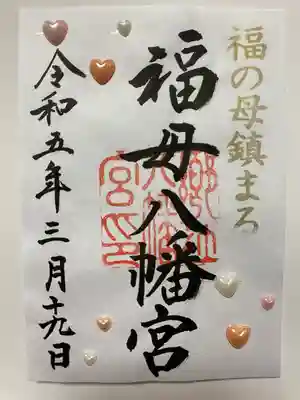 福の母鎮まろ
福母八幡宮
令和五年三月十九日